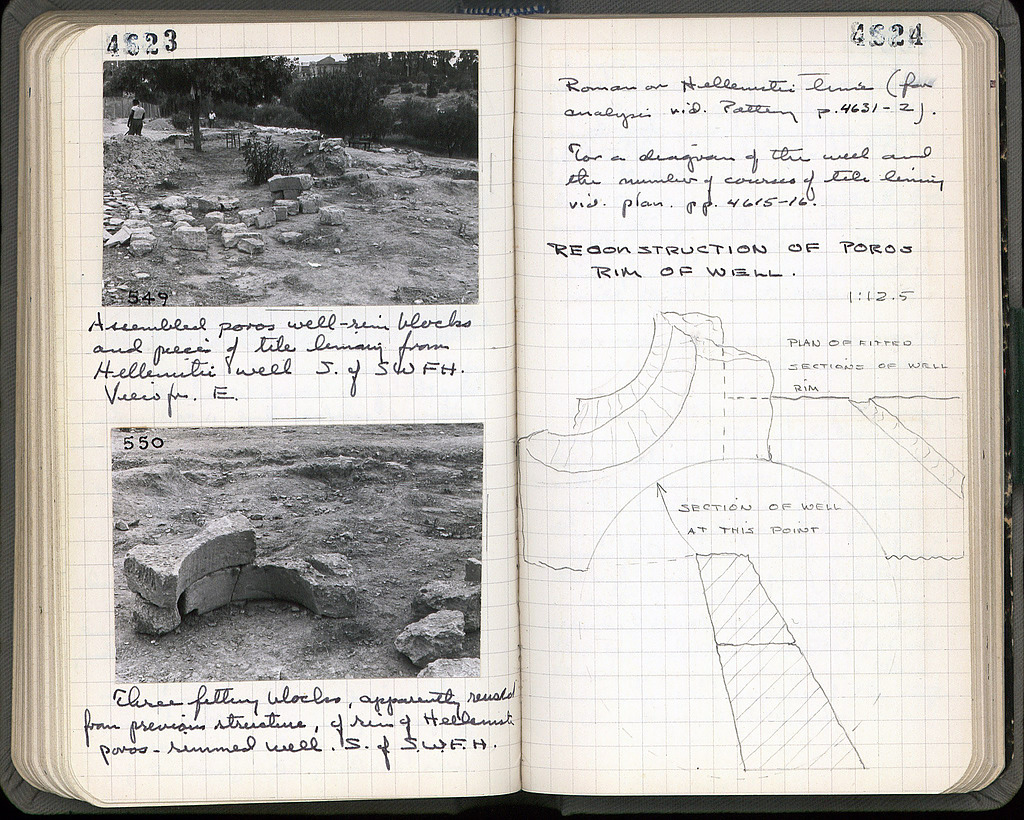 4623
549
Assembled poros well-rim blocks
and pieces of tile lining from
Hellenistic well S. of SWFH.
View fr. E.
550
Three fitting blocks, apparently reused
from previous structure, of rim of Hellenist.
poros-rimmed well. S. of S.W.F.H.
4624
Roman or Hellenistic times (for
analysis vid. Pottery p.4631-2).
For a diagram of the well and
the number of courses of tile lining
vid. plan. pp. 4615-16.
RECONSTRUCTION OF POROS
RIM OF WELL.
1:12.5
PLAN OF FITTED
SECTIONS OF WELL
RIM
SECTION OF WELL
AT THIS POINT